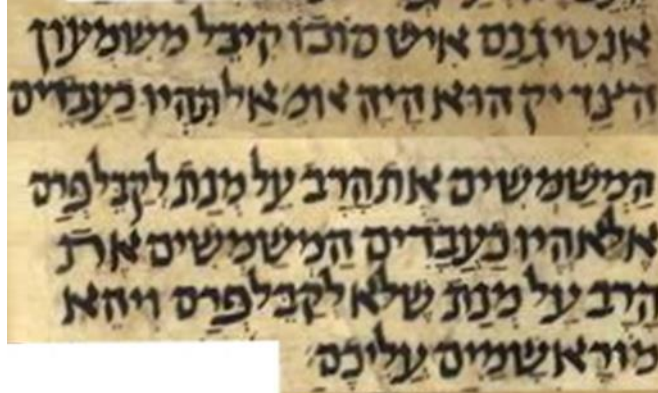 אנטיגנס איש סוכו קיבל משמעון
הצדיק הוא היה אומ׳ אל תהיו כעבדים
המשמשים את הרב על מנת לקבל פרס
אלא היו כעבדים המשמשים את
הרב על מנת שלא לקבל פרס ויהא
מורא שמים עליכם